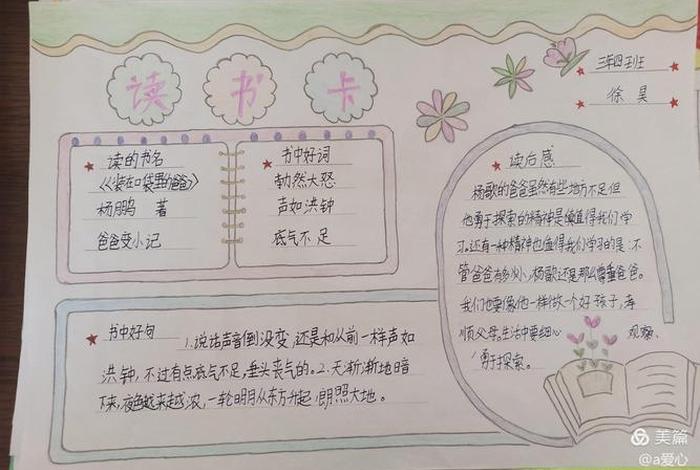 读书卡
三年四班
徐昊
读的书名
《装在口袋里的爸爸》
杨鹏 著
爸爸变小记
书中好词
勃然大怒
声如洪钟
底气不足
读后感
杨歌的爸爸虽然有些地方不足但
他勇于探索的精神是值得我们学
习。还有一种精神也值得我们学习的是:不
管爸爸有多小,杨歌还是那么尊重爸爸。
我们也要像他一样做一个好孩子,孝
顺父母。生活中要细心 观察、
勇于探索。
书中好句
1.说话声音倒没变,还是和从前一样声如
洪钟,不过有点底气不足,垂头丧气的。2.天渐渐地暗
下来,夜色越来越浓,一轮明月从东方升起,朗照大地。
美篇
@a爱心